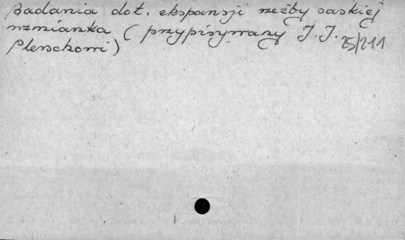 Badania dot. ekspansji rzeźby saskiej
wzmianka (przypisywany J.J.
Plerschowi) 25/211